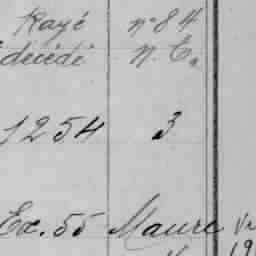 Rayé n° 84
décédé N. E.
1254 3
Ex. 55 Maure
19